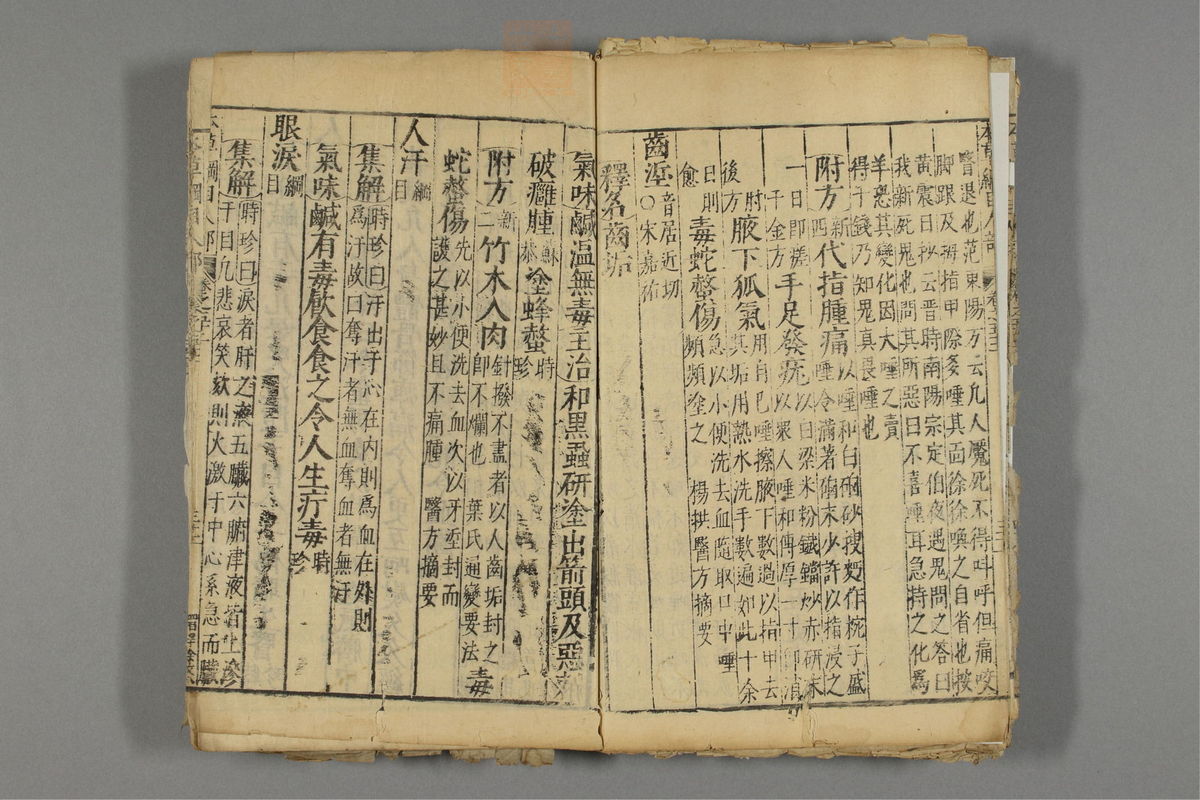 醫退也范東陽方云凡人魘死不得叫呼但痛咬
脚跟及拇指甲際多唾其面徐徐喚之自省也按
黃震日抄云晉時南陽宗定伯夜遇鬼問之答曰
我新死鬼也問其所惡曰不喜唾耳急持之化爲
羊恐其變化因大唾之賣
得千錢乃知鬼真畏唾也
附方新四代指腫痛以唾和白硇砂搜麪作椀子盛唾令滿著硇末少許以指浸之
一日即瘥千金方手足發疣以白粱米粉鐵鐺炒赤研末以衆人唾和傅厚一寸即消
肘後方腋下狐氣用自己唾擦腋下數過以指甲去其垢用熱水洗手數遍如此十余
日則愈毒蛇螫傷急以小便洗去血隨取口中唾頻頻塗之楊拱醫方摘要
齒垽音居近切○宋嘉祐
釋名齒垢
氣味鹹溫無毒主治和黑蝨研塗出箭頭及惡刺
破癰腫蘇恭塗蜂螫時珍
附方新二竹木入肉針撥不盡者以人齒垢封之即不爛也葉氏通變要法毒
蛇螫傷先以小便洗去血次以牙垽封而護之甚妙且不痛腫醫方摘要
人汗綱目
集解時珍曰汗出于心在内則爲血在外則爲汗故曰奪汗者無血奪血者無汗
氣味鹹有毒飲食食之令人生疔毒時珍
眼淚綱目
集解時珍曰淚者肝之液五臟六腑津液皆上滲
于目凡悲哀笑欬則火激于中心系急而臟